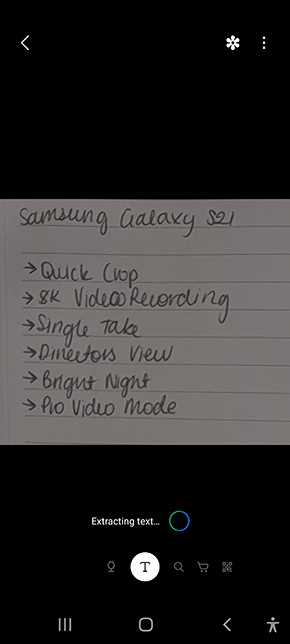 Samsung Galaxy S21
→ Quick Crop
→ 8K Video Recording
→ Single Take
→ Directors View
→ Bright Night
→ Pro Video Mode
Extracting text...
T